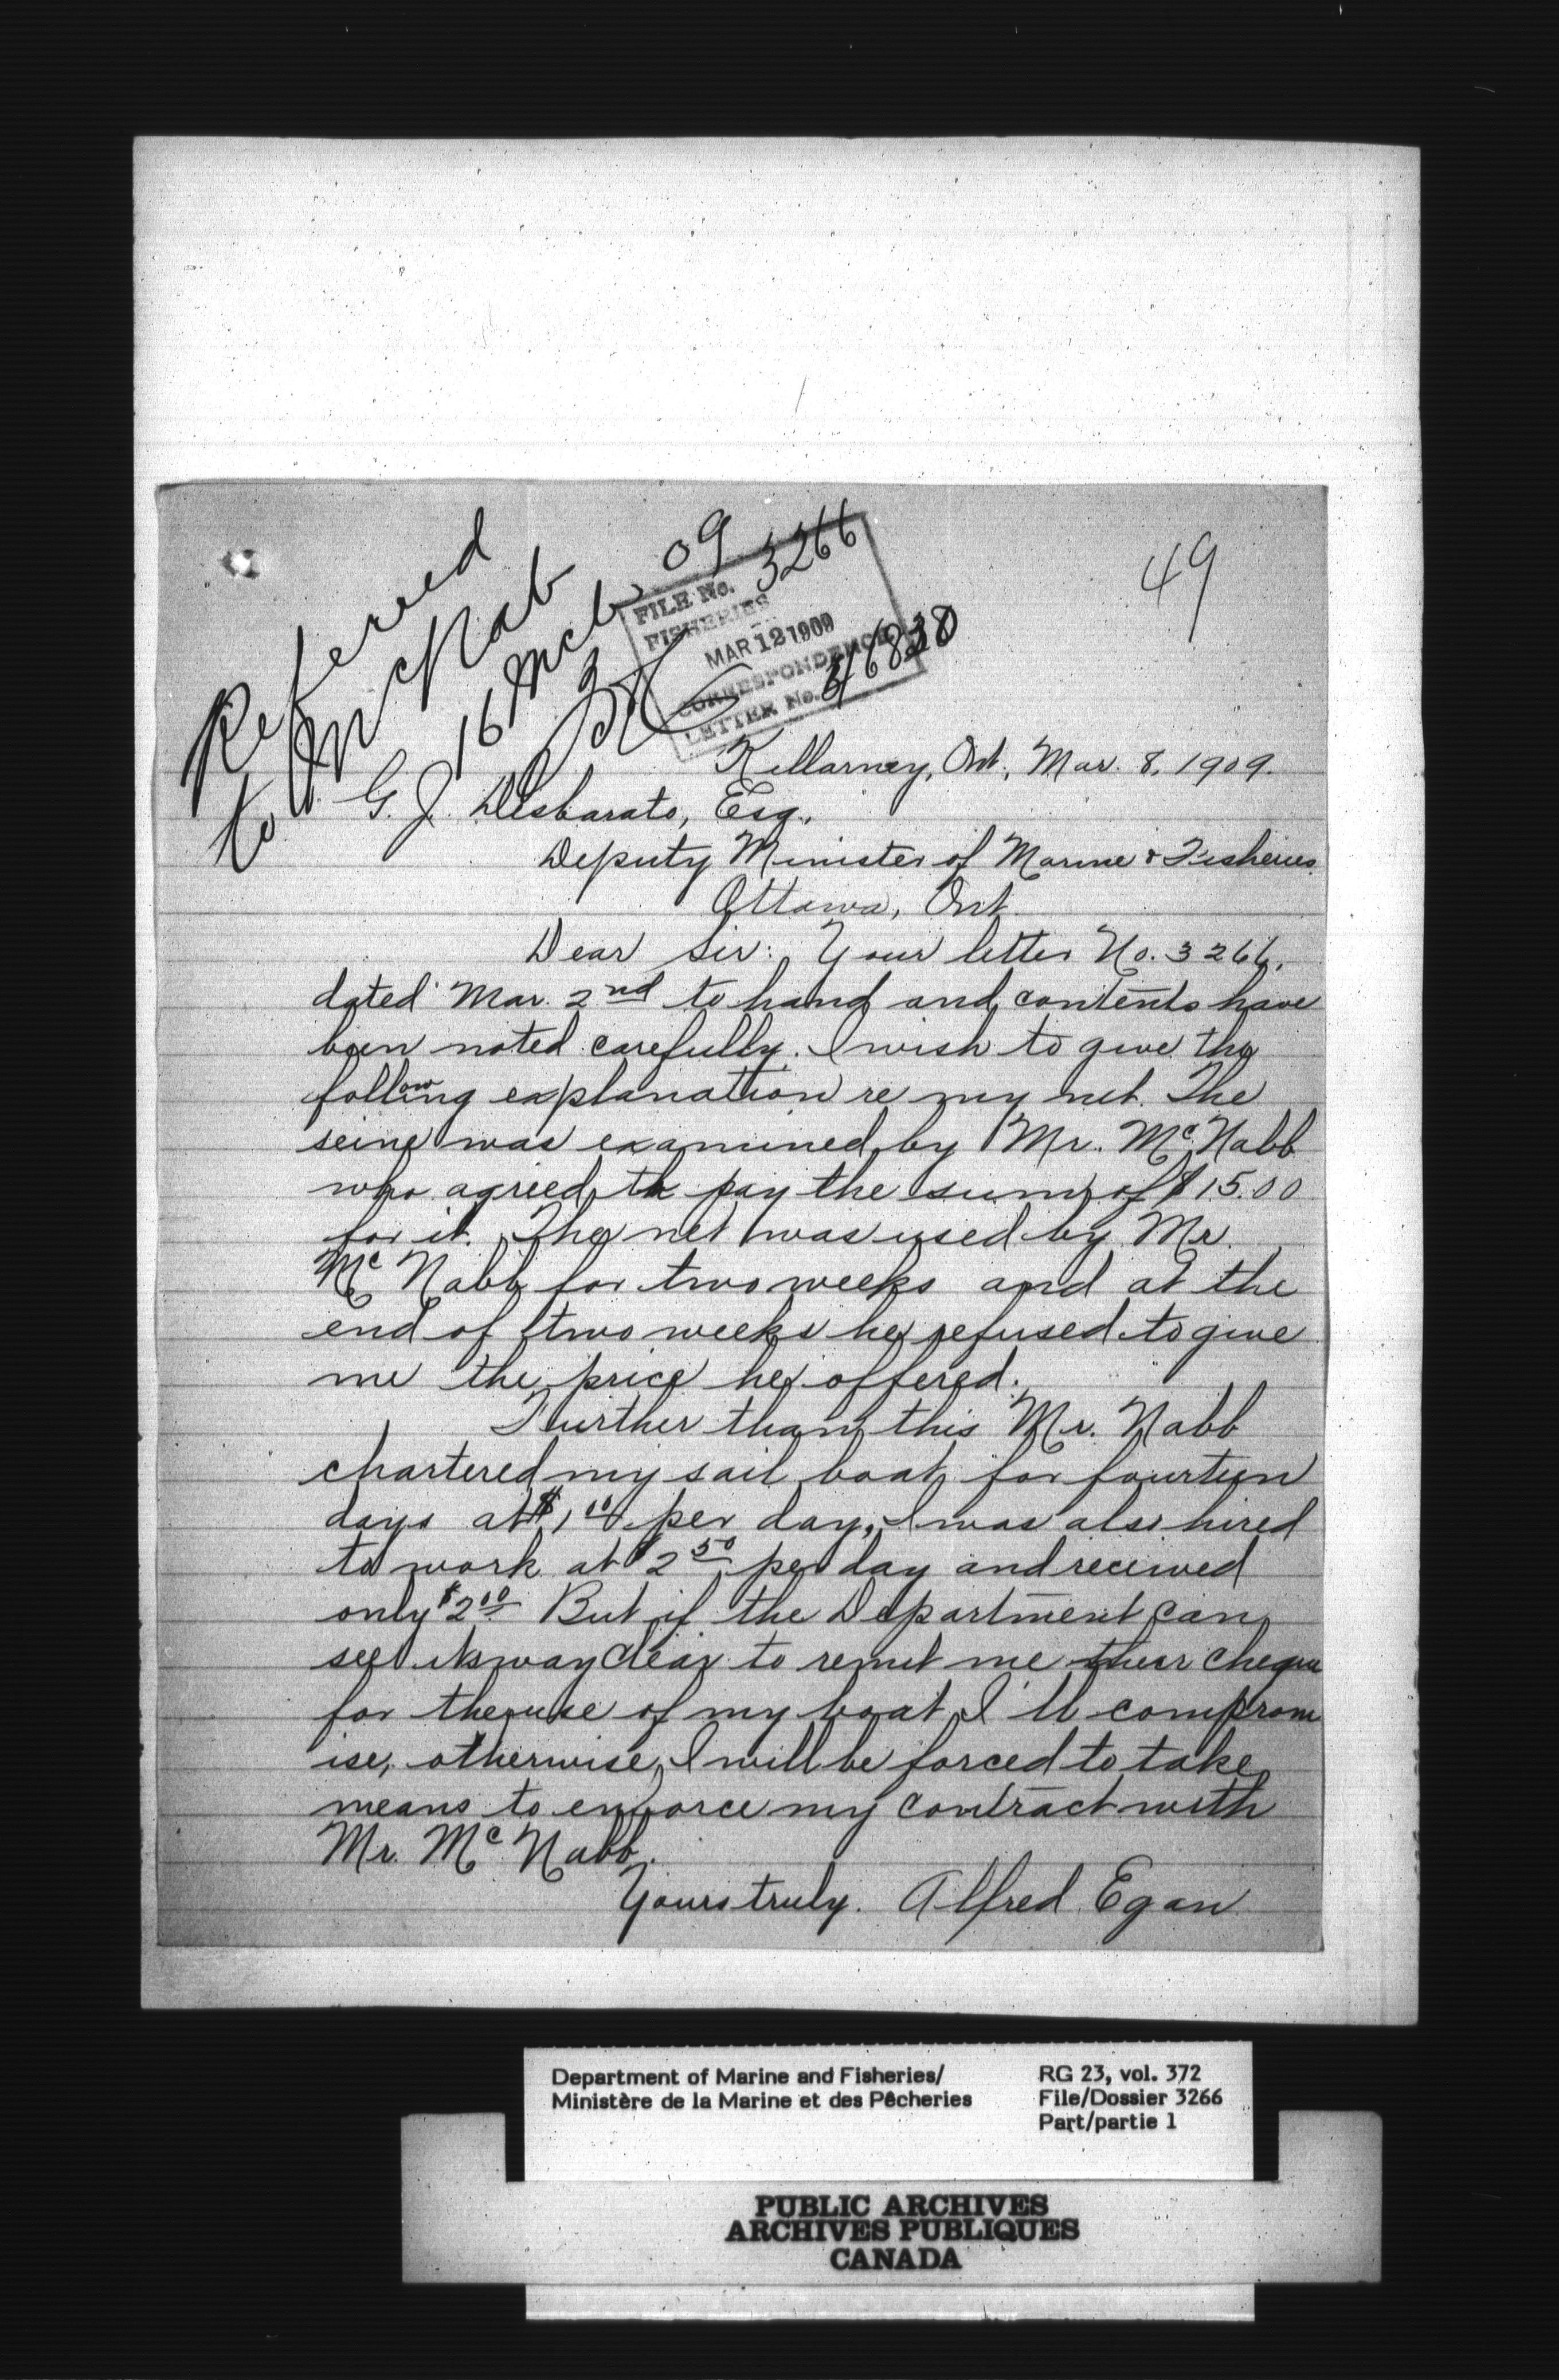 49
Referred
to Mr McNab
16 Mch 09
FILE No. 3266
FISHERIES
MAR 12 1909
CORRESPONDENCE
LETTER No.
Killarney, Ont., Mar. 8, 1909.
G. J. Desbarats, Esq.,
Deputy Minister of Marine & Fisheries
Ottawa, Ont.
Dear Sir: Your letter No. 3266,
dated Mar. 2nd to hand and contents have
been noted carefully. I wish to give the
following explanation re my net. The
seine was examined by Mr. McNabb
who agreed to pay the sum of $15.00
for it. The net was used by Mr.
McNabb for two weeks and at the
end of two weeks he refused to give
me the price he offered.
Further than this Mr. Nabb
chartered my sail boat for fourteen
days at $1.00 per day, I was also hired
to work at $2.50 per day and received
only $2.00 But if the Department can
see its way clear to remit me their cheque
for the use of my boat I'll comprom
ise, otherwise, I will be forced to take
means to enforce my contract with
Mr. McNabb.
Yours truly. Alfred Egan
Department of Marine and Fisheries/
Ministère de la Marine et des Pêcheries
RG 23, vol. 372
File/Dossier 3266
Part/partie 1
PUBLIC ARCHIVES
ARCHIVES PUBLIQUES
CANADA